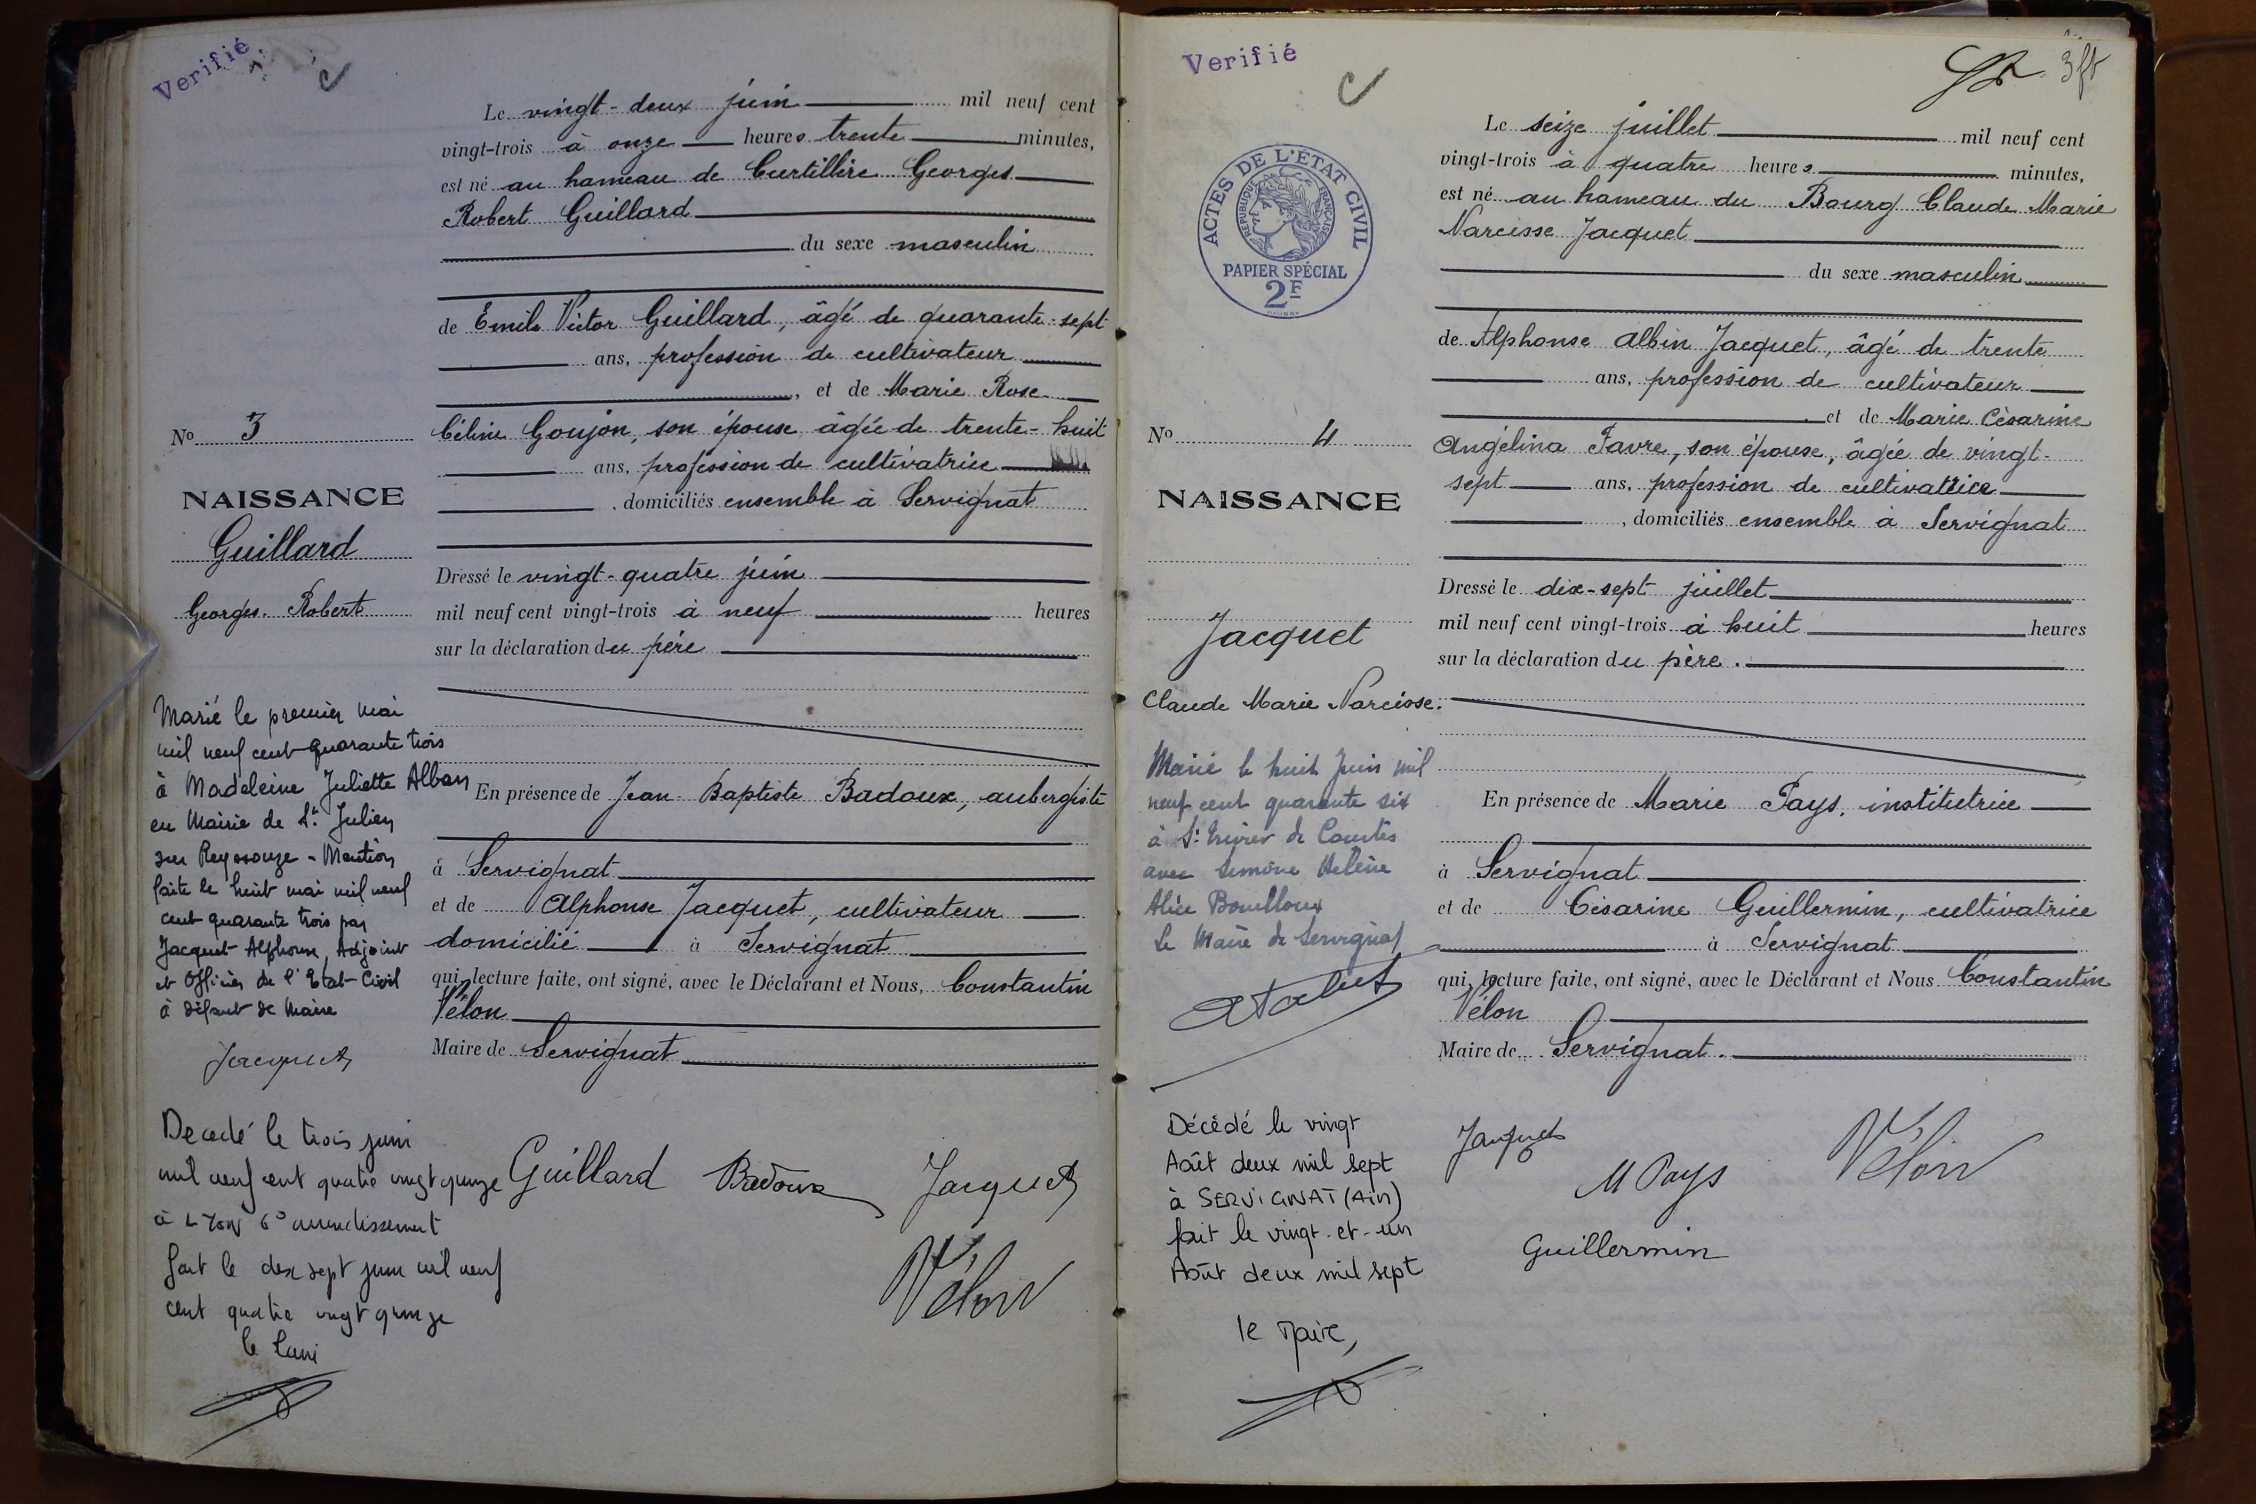 Verifié
Le vingt-deux juin mil neuf cent
vingt-trois à onze heures trente minutes,
est né au hameau de Curtillère Georges
Robert Guillard
du sexe masculin
de Emile Victor Guillard, âgé de quarante-sept
ans, profession de cultivateur
, et de Marie Rose
Céline Goujon, son épouse âgée de trente-huit
ans, profession de cultivatrice
, domiciliés ensemble à Servignat
Dressé le vingt-quatre juin
mil neuf cent vingt-trois à neuf heures
sur la déclaration du père
En présence de Jean Baptiste Badoux, aubergiste
à Servignat
et de Alphonse Jacquet, cultivateur
domicilié à Servignat
qui, lecture faite, ont signé, avec le Déclarant et Nous, Constantin
Vélon
Maire de Servignat
Guillard Badoux Jacquet
Vélon
No 3
NAISSANCE
Guillard
Georges Robert
Marié le premier mai
mil neuf cent quarante trois
à Madeleine Juliette Alban
en Mairie de St Julien
sur Reyssouze - Mention
faite le huit mai mil neuf
cent quarante trois par
Jacquet Alphonse, Adjoint
et Officier de l'Etat-Civil
à défaut de Maire
Jacquet
Decedé le trois juin
mil neuf cent quatre vingt quinze
à LYON 6° arrondissement
fait le dix sept juin mil neuf
cent quatre vingt quinze
Verifié
ACTES DE L'ÉTAT CIVIL
RÉPUBLIQUE FRANÇAISE
PAPIER SPÉCIAL
2F
Le seize juillet mil neuf cent
vingt-trois à quatre heures minutes,
est né au hameau du Bourg Claude Marie
Narcisse Jacquet
du sexe masculin
de Alphonse Albin Jacquet, âgé de trente
ans, profession de cultivateur
et de Marie Césarine
Angélina Favre, son épouse, âgée de vingt-
sept ans, profession de cultivatrice
, domiciliés ensemble à Servignat
Dressé le dix-sept juillet
mil neuf cent vingt-trois à huit heures
sur la déclaration du père.
En présence de Marie Pays, institutrice
à Servignat
et de Césarine Guillermin, cultivatrice
à Servignat
qui, lecture faite, ont signé, avec le Déclarant et Nous Constantin
Vélon
Maire de Servignat.
Jacquet
M Pays
Vélon
Guillermin
No 4
NAISSANCE
Jacquet
Claude Marie Narcisse.
Marié le huit Juin mil
neuf cent quarante six
à St Trivier de Courtes
avec Simone Hélène
Alice Bouilloux
Le Maire de Servignat
Décédé le vingt
Août deux mil sept
à SERVIGNAT (Ain)
fait le vingt-et-un
Août deux mil sept
le Maire,